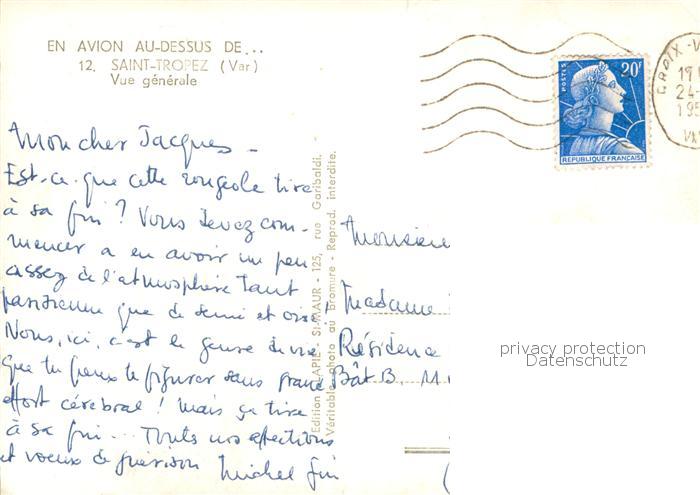 EN AVION AU-DESSUS DE...
12. SAINT-TROPEZ (Var)
Vue générale
Mon cher Jacques -
Est-ce que cette rougeole tire
à sa fin ? Vous devez com-
mencer a en avoir un peu
assez de l'atmosphère tant
parisienne que de
Nous, ici, c'est le genre de vie
que tu peux te figurer sans grand
effort cérébral ! Mais ça tire
à sa fin... Toutes nos affections
et voeux de guérison Michel
Edition LAPIE - St-MAUR - 125, rue Garibaldi.
Véritable photo au bromure - Reprod. interdite.
POSTES
20F
REPUBLIQUE FRANÇAISE
CROIX-V
24-
195
VAR
Monsieur
Madame
Résidence
Bât B.
privacy protection
Datenschutz